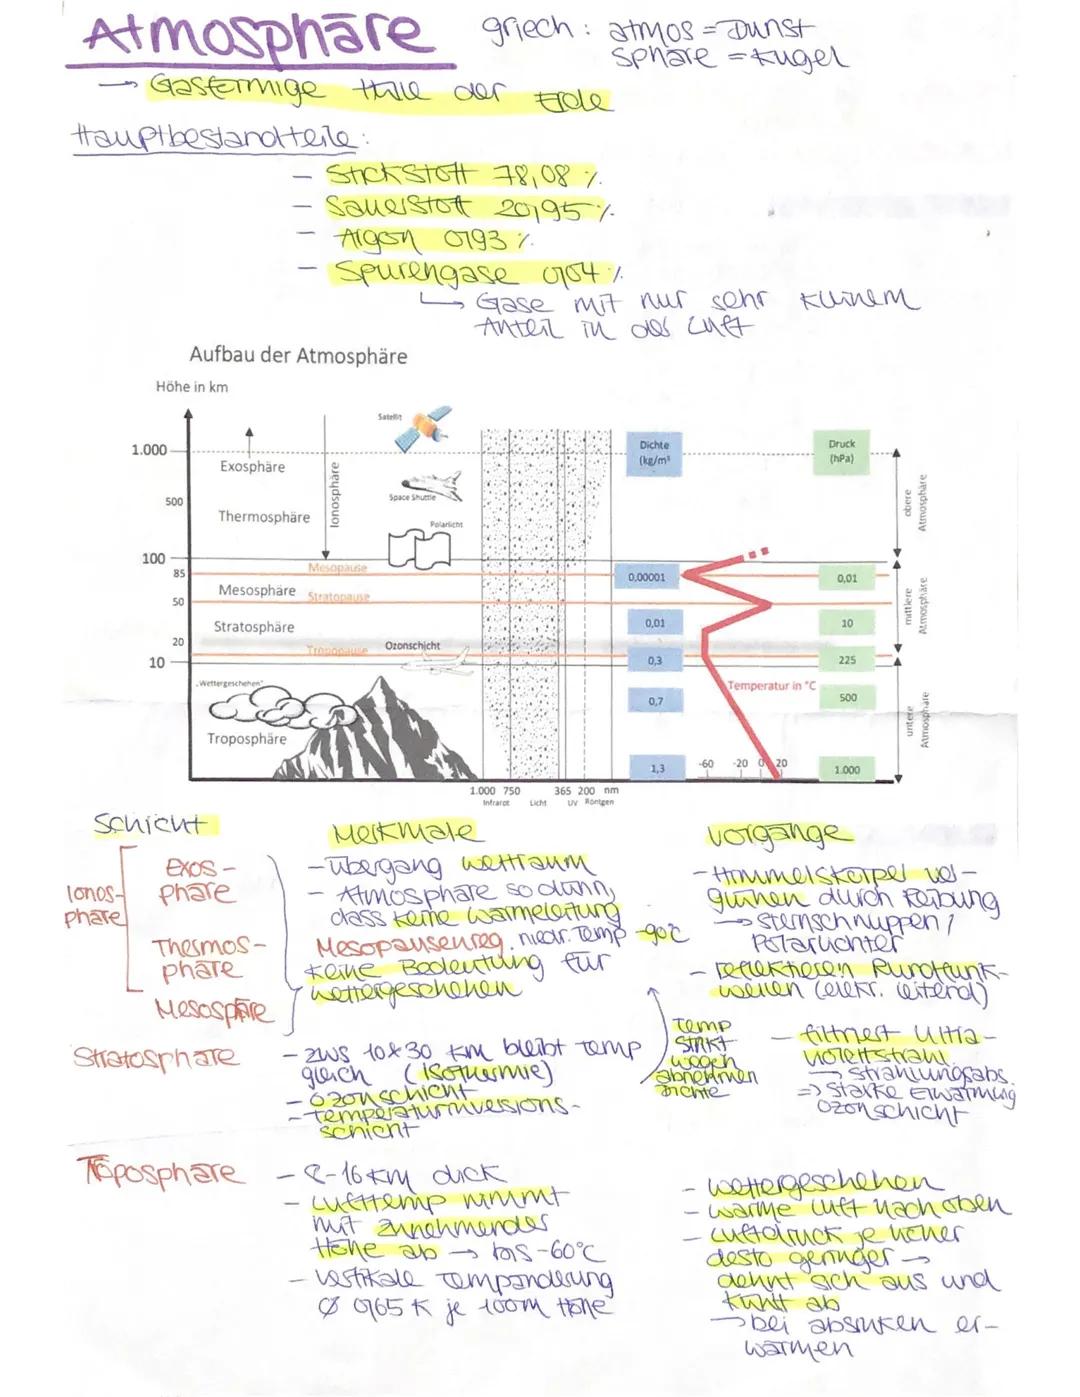 Atmosphäre griech: atmos = Dunst
sphäre = Kugel
→ Gasförmige Hülle der Erde
Hauptbestandteile:
- Stickstoff 78,08 %
- Sauerstoff 20,95 %
- Argon 0,93 %
- Spurengase 0,04 %
↳ Gase mit nur sehr kleinem
Anteil in der Luft
Aufbau der Atmosphäre
Höhe in km
Satellit
1.000
Exosphäre
Ionosphäre
Dichte
(kg/m³
Druck
(hPa)
500
Space Shuttle
Thermosphäre
Polarlicht
obere
Atmosphäre
100
Mesopause
85
0,00001
0,01
Mesosphäre
Stratopause
50
mittlere
Atmosphäre
Stratosphäre
0,01
10
20
Tropopause
Ozonschicht
10
0,3
225
„Wettergeschehen"
Temperatur in °C
0,7
500
Troposphäre
untere
Atmosphäre
1,3
-60 -20 0 20
1.000
1.000 750 365 200 nm
Infrarot Licht UV Röntgen
Schicht Merkmale Vorgänge
Ionos-
phäre
Exos-
phäre
Thermos-
phäre
Mesosphäre
- Übergang Weltraum
- Atmosphäre so dünn,
dass keine Wärmeleitung
Mesopausenreg. niedr. Temp -90°C
keine Bedeutung für
Wettergeschehen
- Himmelskörper ver-
glühen durch Reibung
→ Sternschnuppen /
Polarlichter
- reflektieren Rundfunk-
wellen (elekr. leitend)
Temp
sinkt
wegen
abnehmen
Dichte
Stratosphäre
- zws 10 & 30 km bleibt Temp
gleich (Isothermie)
- Ozonschicht
- Temperaturinversions-
schicht
- filtriert Ultra-
violettstrahl
→ Strahlungsabs.
=> starke Erwärmung
Ozonschicht
Troposphäre
- 8-16 km dick
- Lufttemp nimmt
mit zunehmender
Höhe ab → bis -60°C
- vertikale Tempänderung
Ø 0,65 K je 100m Höhe
- Wettergeschehen
- warme Luft nach oben
- Luftdruck je höher
desto geringer →
dehnt sich aus und
kühlt ab
→ bei absinken er-
wärmen